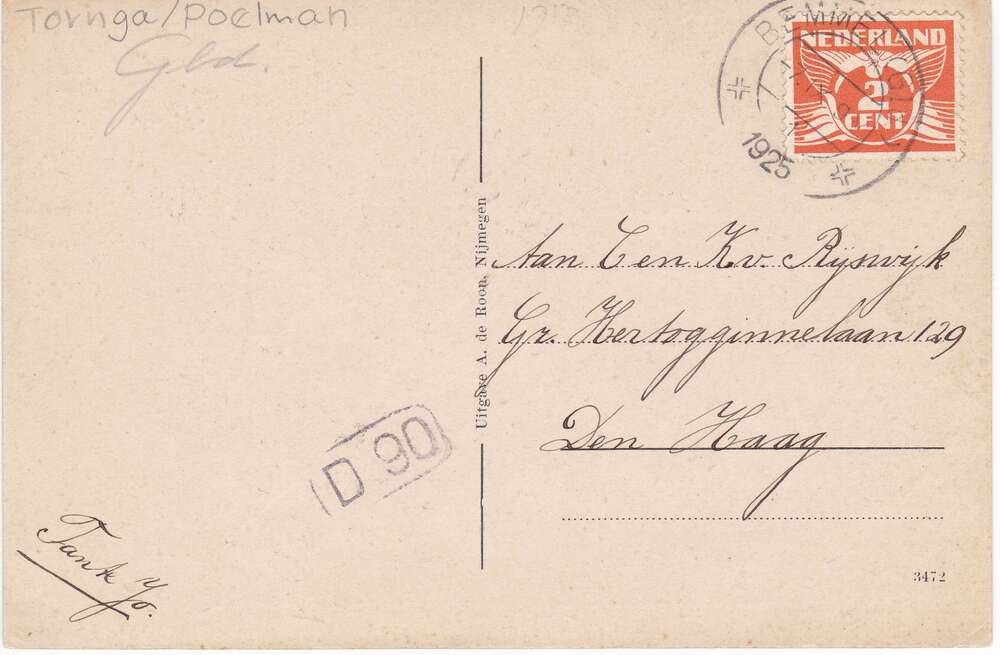 Tornga/Poelman
Gld.
BEMMEL (GLD.)
1925
NEDERLAND
2
CENT
Uitgave A. de Roon, Nijmegen
Aan C en K v. Rijswijk
Gr. Hertogginnelaan 129
Den Haag
D 90
Tante Jo.
3472